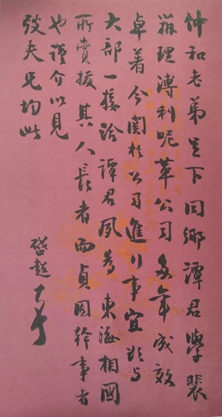 仲和老弟足下同鄉譚君學裴
辦理溥利呢革公司多年成效
卓著今關於公司進行事宜欲与
大部一接洽譚君夙為東海相國
所賞拔其人長者而貞固幹事者
也謹介以見
夫兄均此
啓超